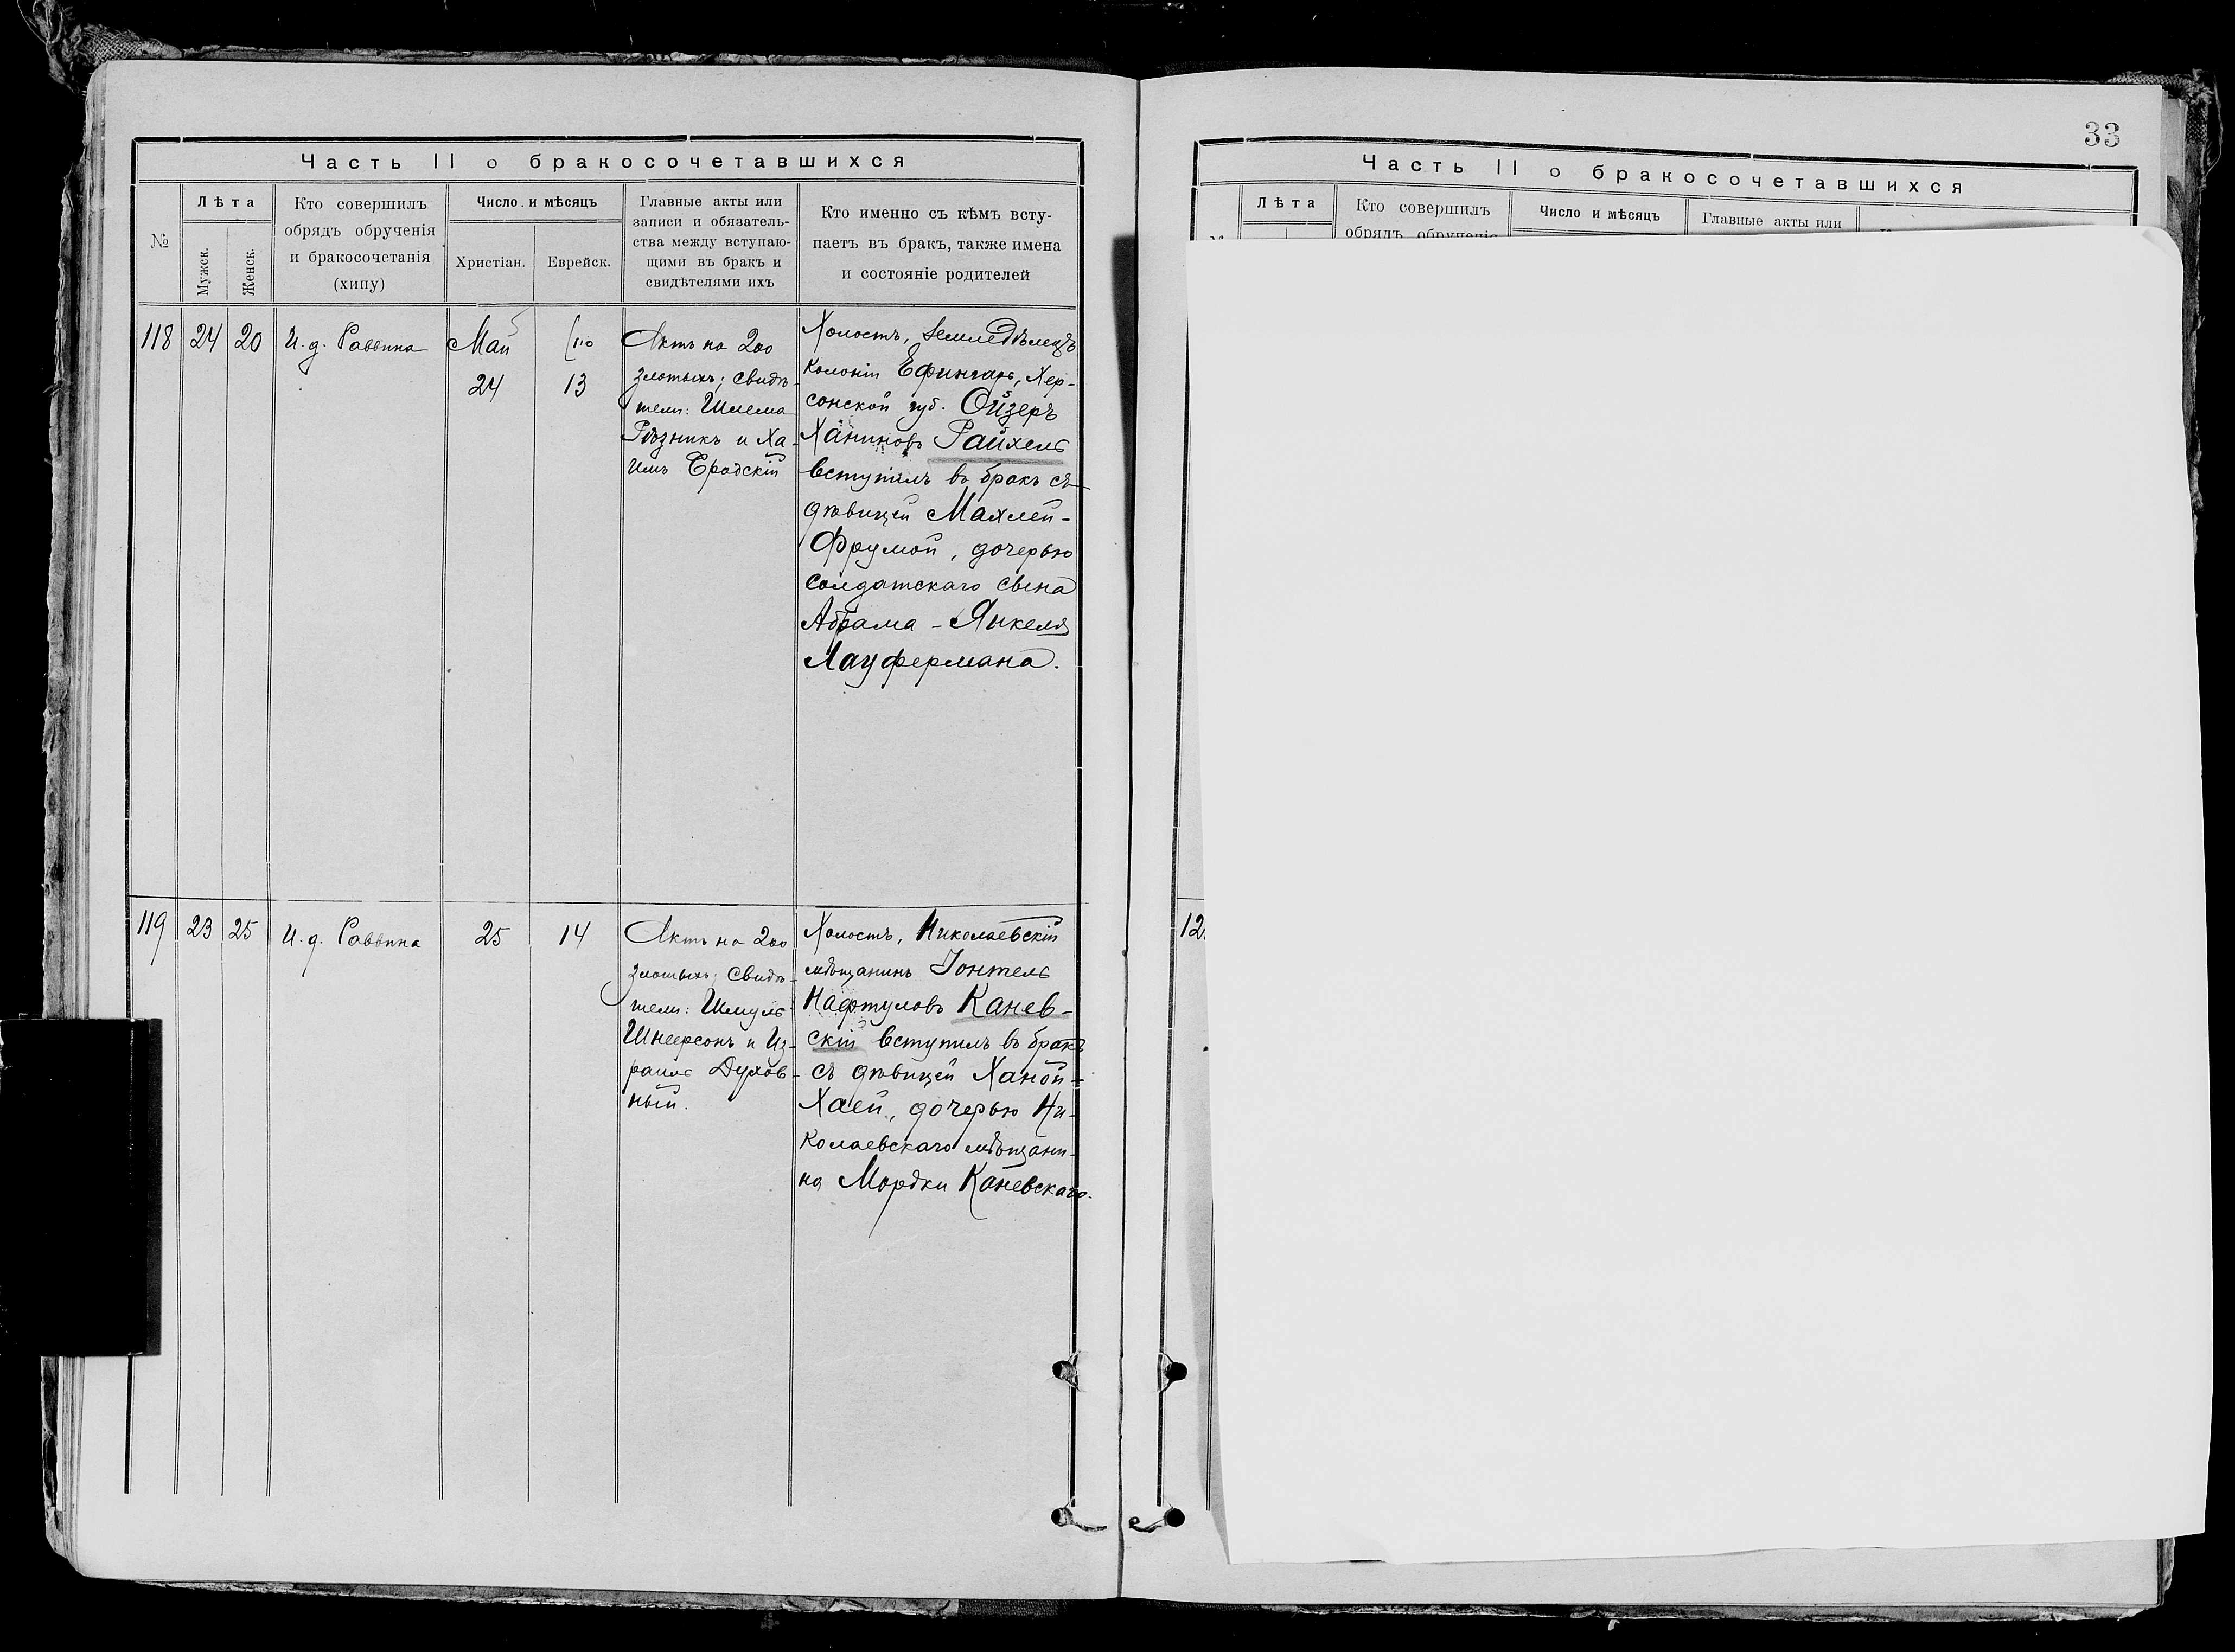 Часть II о бракосочетавшихся
№
Лѣта
Мужск.
Женск.
Кто совершилъ
обрядъ обрученія
и бракосочетанія
(хипу)
Число и мѣсяцъ
Христіан.
Еврейск.
Главные акты или
записи и обязатель-
ства между вступаю-
щими въ бракъ и
свидѣтелями ихъ
Кто именно съ кѣмъ всту-
паетъ въ бракъ, также имена
и состояніе родителей
118
24
20
И. д. Раввина
Май
24
13
Актъ на 200
злотыхъ; свидѣ-
тели: Шлема
Рѣзникъ и Ха-
имъ Бродскій
Холостъ, земледѣлецъ
колоніи Ефингаръ, Хер-
сонской губ. Ойзеръ
Ханиновъ Райхель
вступилъ въ бракъ съ
дѣвицей Махлей-
Фрумой, дочерью
солдатскаго сына
Абрама-Янкеля
Лауфермана.
119
23
25
И. д. Раввина
25
14
Актъ на 200
злотыхъ; свидѣ-
тели: Шмуль
Шнеерсонъ и Из-
раиль Духов-
ный.
Холостъ, Николаевскій
мѣщанинъ Іонтель
Нафтуловъ Канев-
скій вступилъ въ бракъ
съ дѣвицей Ханой-
Хаей, дочерью Ни-
колаевскаго мѣщани-
на Мордки Каневскаго.
33
Часть II о бракосочетавшихся
Лѣта
Кто совершилъ
обрядъ обрученія
Число и мѣсяцъ
Главные акты или
12